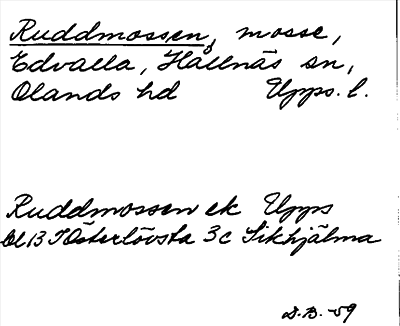 Ruddmossen, mosse,
Edvalla, Hållnäs sn,
Olands hd Upps. l.
Ruddmossen ek Upps
bl.13 I Österlövsta 3c Sikhjälma
D.B. -59